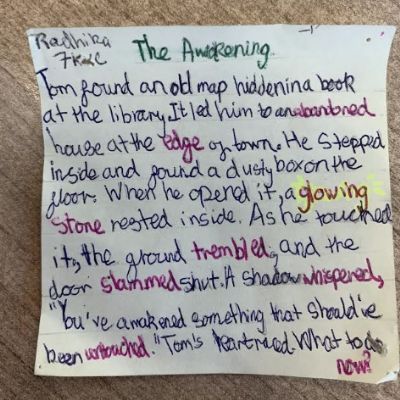 Radhika
7K&C
The Awakening
Tom found an old map hidden in a book
at the library. It led him to an abandoned
house at the edge of town. He stepped
inside and found a dusty box on the
floor. When he opened it, a glowing
stone rested inside. As he touched
it, the ground trembled, and the
door slammed shut. A shadow whispered,
"You've awakened something that should've
been untouched." Tom's heart raced. What to do
now?